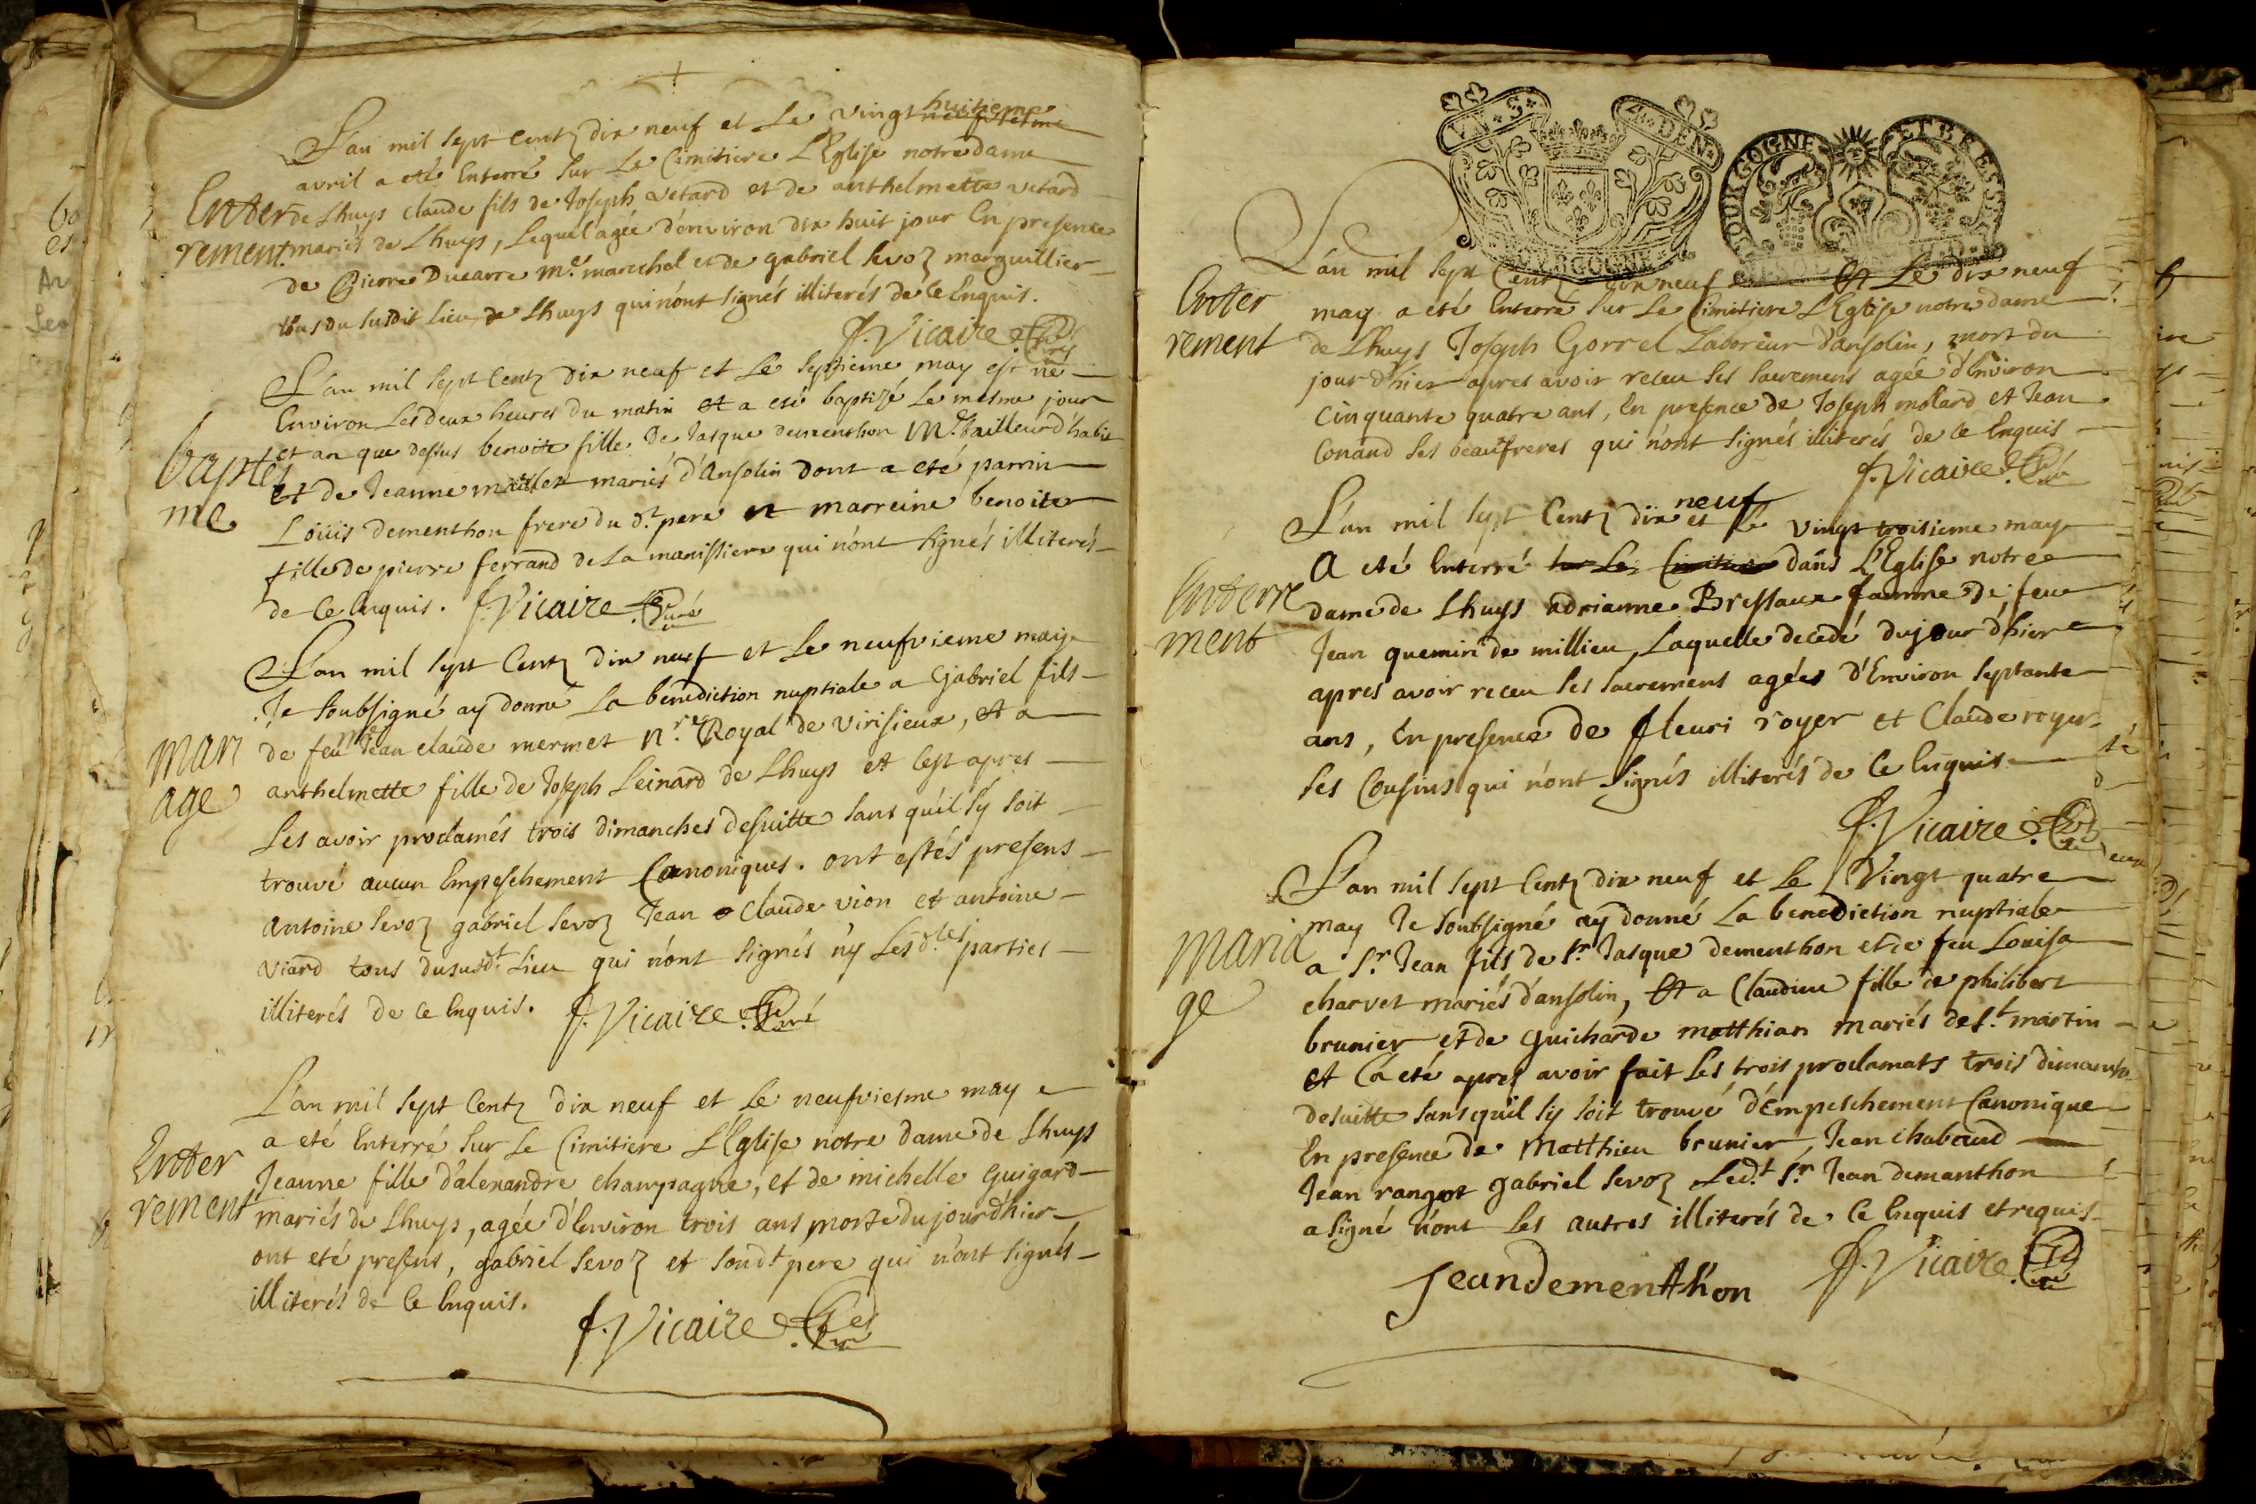 L'an mil sept Centz dix neuf et Le vingt huitieme
avril a eté Enterré sur Le Cimitiere L'Eglise notre dame
Enter de Lhuys claude fils de Joseph vetard et de anthelmette vetard
rement mariés de Lhuys, Lequel agée d'environ dix huit jour En presence
de Pierre Ducarre Me. marechal et de gabriel Sevoz marguillier
tous du susdit Lieu de Lhuys qui n'ont signés illiterés de ce Enquis.
f. Vicaire Curé
L'an mil sept Centz dix neuf et Le septieme may est né
Environ Les deux heures du matin et a eté baptizé Le mesme jour
et an que dessus benoite fille De Jasque dementhon Me. tailleur d'habit
baptes
me
et de Jeanne maillet mariés d'Ansolin dont a eté parrin
Loüis dementhon frere du d.t pere et marreine benoite
fille de pierre ferrand de La manissiere qui n'ont signés illiterés
de Ce Enquis. f. Vicaire Curé
L'an mil sept Centz dix neuf et Le neufvieme may
Je soubsigné ay donné La benediction nuptiale a Gabriel fils
mari
age
de feu me Jean claude mermet n.re Royal de virisieux, et a
anthelmette fille de Joseph Leinard de Lhuys et c'est apres
Les avoir proclamés trois dimanches desuitte sans qu'il s'y soit
trouvé aucun Empeschement Canoniques. ont estés presens
antoine Sevoz gabriel Sevoz Jean Claude vion et antoine
viard tous du susd.t Lieu qui n'ont signés n'y Les d.tes parties
illiterés de ce Enquis. f. Vicaire Curé
L'an mil sept Centz dix neuf et Le neufviesme may
a eté Enterré sur Le Cimitiere L'Eglise notre dame de Lhuys
Enter
rement
Jeanne fille d'alexandre champagne, et de michelle Guigard
mariés de Lhuys, agée d'Environ trois ans morte du jour d'hier
ont eté presens, gabriel Sevoz et sond.t pere qui n'ont signés
illiterés de Ce Enquis.
f. Vicaire Curé
UN S. 4. DEN.
BOURGOGNE
BOURGOGNE ET BRESSE
L'an mil sept Centz dix neuf Et Le dix neuf
Enter
rement
may a eté Enterré sur Le Cimitiere L'Eglise notre dame
de Lhuys Joseph Gorrel Laboreur d'ansolin, mort du
jour d'hier apres avoir receu ses sacremens agée d'Environ
Cinquante quatre ans, En presence de Joseph molard et Jean
Conand ses beaufreres qui n'ont signés illiterés de Ce Enquis
f. Vicaire Curé
L'an mil sept Centz dix neuf et Le vingt troisieme may
A eté Enterré sur Le Cimitiere dans L'Eglise notre
Enterre
ment
dame de Lhuys adrianne Bressaux famme de feu
Jean quemin de millieu, Laquelle decedé du jour d'hier
apres avoir receu ses sacremens agées d'Environ septante
ans, En presence de fleuri royer et Claude royer
ses Cousins qui n'ont signés illiterés de Ce Enquis
f. Vicaire Curé
L'an mil sept Centz dix neuf et Le Vingt quatre
may Je soubsigné ay donné La benediction nuptiale
Maria
ge
a S.r Jean fils de S.r Jasque dementhon et de feu Louisa
charvet mariés d'ansolin, Et a Claudine fille de philibert
brunier et de guicharde matthian mariés de S.t martin
et C'a eté apres avoir fait Les trois proclamats trois dimanches
desuitte sans qu'il s'y soit trouvé d'Empeschement Canonique
En presence de Matthieu brunier, Jean chabaud
Jean rangot gabriel Sevoz Led.t S.r Jean demanthon
a signé n'ont Les autres illiterés de Ce Enquis et requis
Jean dementhon f. Vicaire Curé